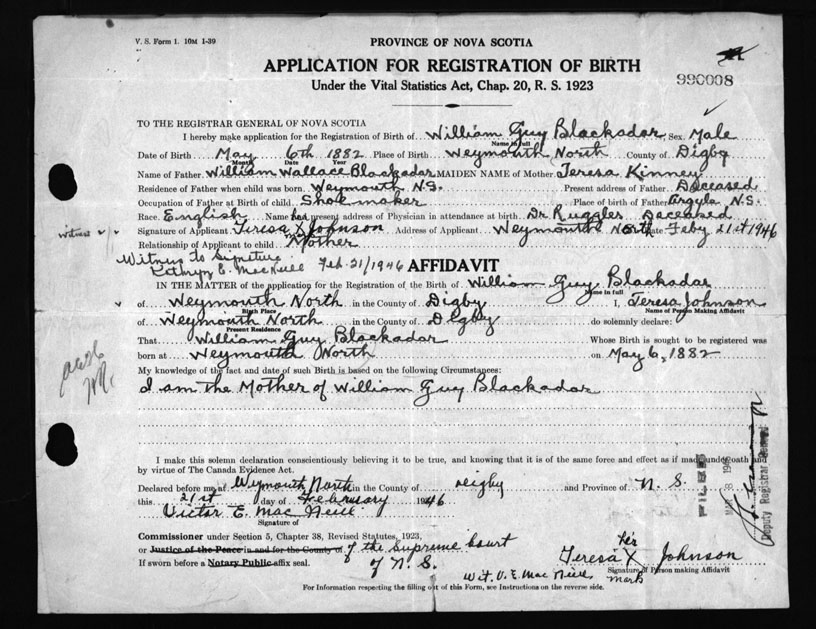 V. S. Form 1. 10M 1-39
PROVINCE OF NOVA SCOTIA
APPLICATION FOR REGISTRATION OF BIRTH
990008
Under the Vital Statistics Act, Chap. 20, R. S. 1923
TO THE REGISTRAR GENERAL OF NOVA SCOTIA
I hereby make application for the Registration of Birth of William Guy Blackadar Sex Male
Name in full
Date of Birth May 6th 1882 Place of Birth Weymouth North County of Digby
Month Date Year
Name of Father William Wallace Blackadar MAIDEN NAME of Mother Teresa Kinney
Residence of Father when child was born Weymouth N.S. Present address of Father Deceased
Occupation of Father at Birth of Child Shoemaker Place of birth of Father Argyle N.S.
Race English Name and present address of Physician in attendance at birth Dr Ruggles Deceased
witness
Signature of Applicant Teresa X Johnson Address of Applicant Weymouth North Date Feby 21st 1946
her
mark
Relationship of Applicant to child Mother
Witness to Signature
Kathryn E. MacNeill Feb. 21/1946
AFFIDAVIT
IN THE MATTER of the application for the Registration of the Birth of William Guy Blackadar
Name in full
of Weymouth North in the County of Digby I, Teresa Johnson
Birth Place Name of Person Making Affidavit
of Weymouth North in the County of Digby do solemnly declare:
Present Residence
That William Guy Blackadar Whose Birth is sought to be registered was
born at Weymouth North on May 6, 1882
My knowledge of the fact and date of such Birth is based on the following Circumstances:
I am the Mother of William Guy Blackadar
I make this solemn declaration conscientiously believing it to be true, and knowing that it is of the same force and effect as if made under oath and
by virtue of The Canada Evidence Act.
Declared before me at Weymouth North in the County of Digby and Province of N. S.
this 21st day of February 1946
Victor E. Mac Neill
Signature of
Commissioner under Section 5, Chapter 38, Revised Statutes, 1923,
or Justice of the Peace in and for the County of of the Supreme Court
If sworn before a Notary Public affix seal. of N. S.
her
Teresa X Johnson
Signature of Person making Affidavit
mark
Wit. V. E. Mac Neill
For Information respecting the filling out of this Form, see Instructions on the reverse side.
FILED
Deputy Registrar General